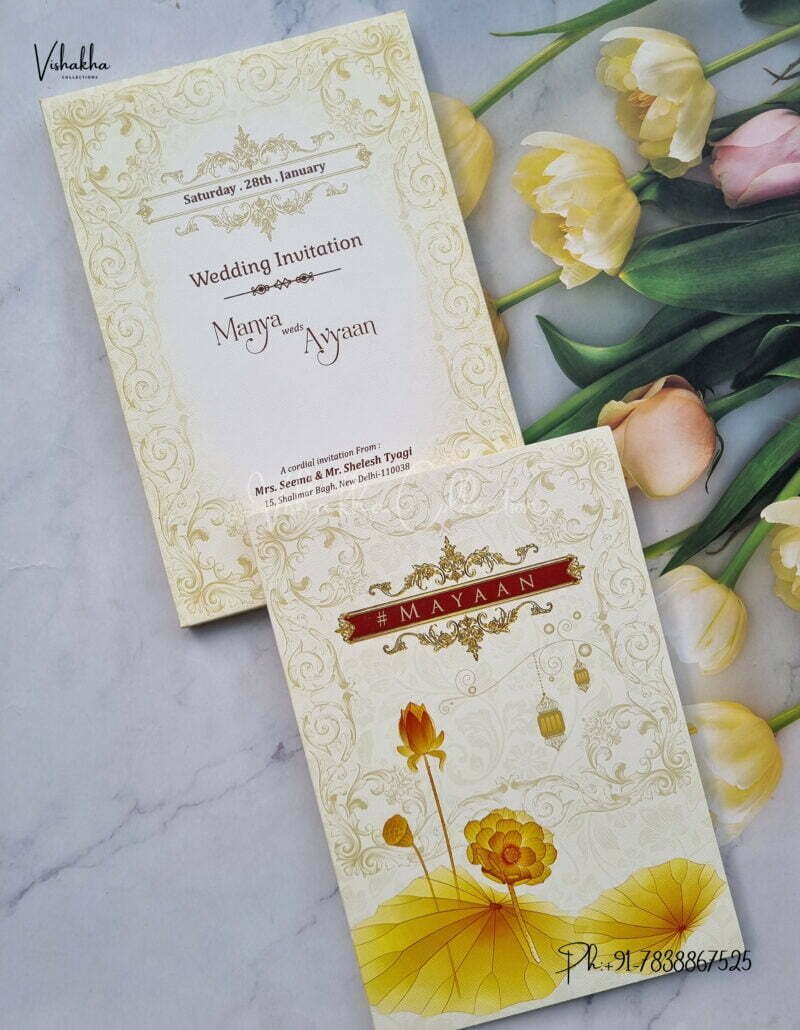 Vishakha
COLLECTIONS
Saturday . 28th . January
Wedding Invitation
Manya weds Avyaan
A cordial invitation From :
Mrs. Seema & Mr. Shelesh Tyagi
15, Shalimar Bagh, New Delhi-110038
Vishakha Collections
# MAYAAN
Ph:+91-7838867525